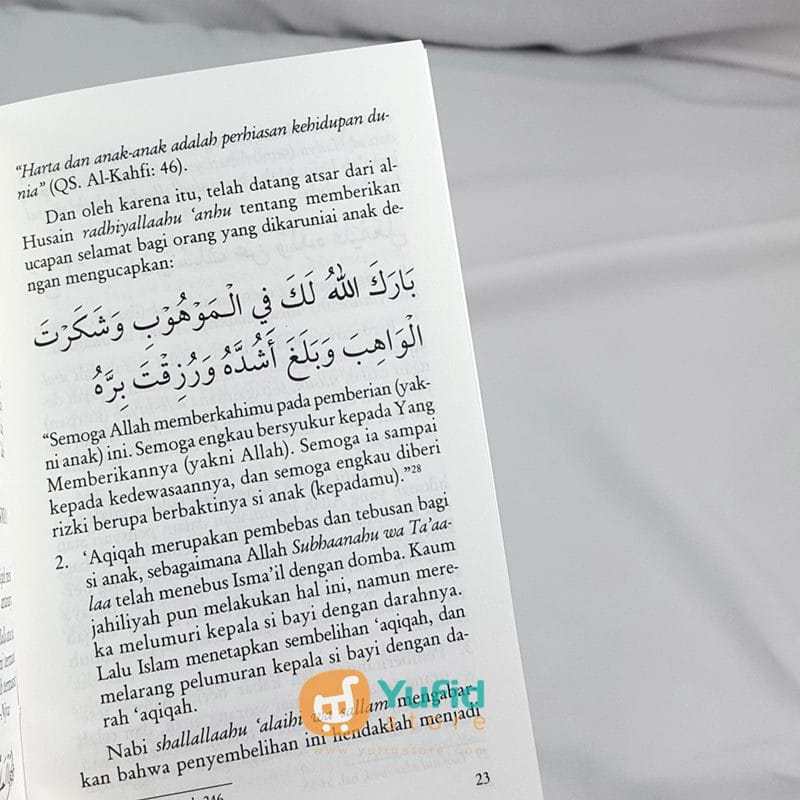 “Harta dan anak-anak adalah perhiasan kehidupan du-
nia” (QS. Al-Kahfi: 46).
Dan oleh karena itu, telah datang atsar dari al-
Husain radhiyallaahu ‘anhu tentang memberikan
ucapan selamat bagi orang yang dikaruniai anak de-
ngan mengucapkan:
بَارَكَ اللهُ لَكَ فِي الْمَوْهُوْبِ وَشَكَرْتَ
الْوَاهِبَ وَبَلَغَ أَشُدَّهُ وَرُزِقْتَ بِرَّهُ
“Semoga Allah memberkahimu pada pemberian (yak-
ni anak) ini. Semoga engkau bersyukur kepada Yang
Memberikannya (yakni Allah). Semoga ia sampai
kepada kedewasaannya, dan semoga engkau diberi
rizki berupa berbaktinya si anak (kepadamu).”28
2. ‘Aqiqah merupakan pembebas dan tebusan bagi
si anak, sebagaimana Allah Subhaanahu wa Ta’aa-
laa telah menebus Isma’il dengan domba. Kaum
jahiliyah pun melakukan hal ini, namun mere-
ka melumuri kepala si bayi dengan darahnya.
Lalu Islam menetapkan sembelihan ‘aqiqah, dan
melarang pelumuran kepala si bayi dengan da-
rah ‘aqiqah.
Nabi shallallaahu ‘alaihi wa sallam mengabar-
kan bahwa penyembelihan ini hendaklah menjadi
23
Yufid
store
www.yufidstore.com